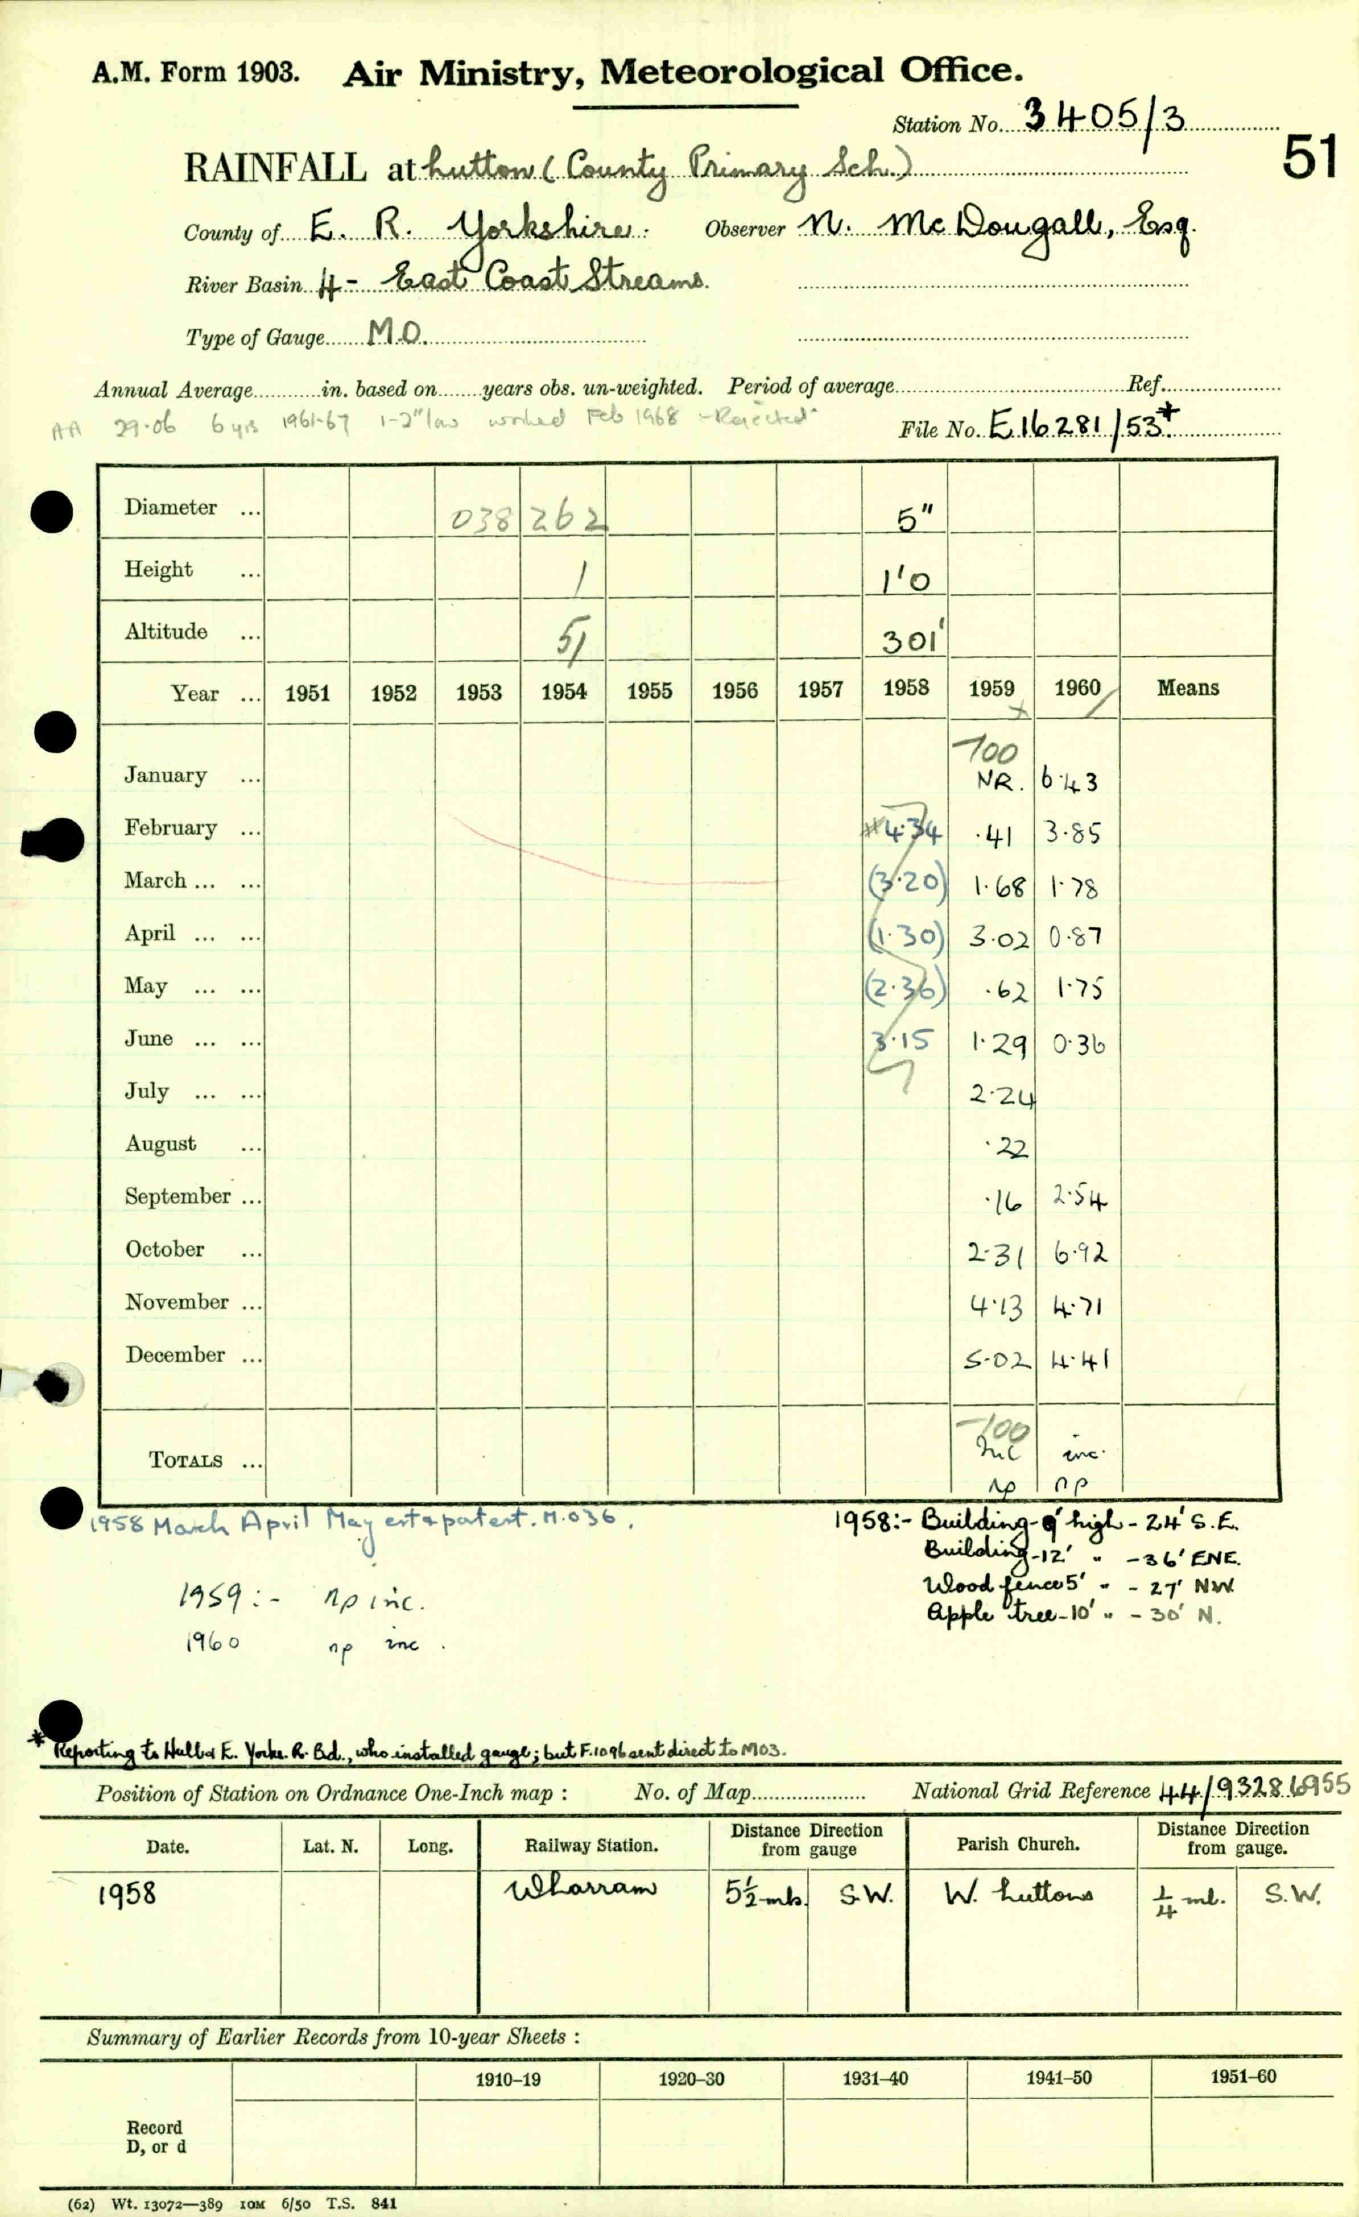 A.M. Form 1903. Air Ministry, Meteorological Office.
Station No. 3405/3
51
RAINFALL at Lutton (County Primary Sch.)
County of E. R. Yorkshire. Observer N. McDougall, Esq.
River Basin 4 - East Coast Streams.
Type of Gauge M.O.
Annual Average in. based on years obs. un-weighted. Period of average Ref.
AA 29.06 6 yrs 1961-67 1-2" low worked Feb 1968 - Rejected
File No. E16281/53*
Diameter ... 038 262 5"
Height ... 1 1'0
Altitude ... 51 301'
Year ... 1951 1952 1953 1954 1955 1956 1957 1958 1959 1960 Means
-100
January ... NR. 6.43
February ... 4.34 .41 3.85
March ... ... (3.20) 1.68 1.78
April ... ... (1.30) 3.02 0.87
May ... ... (2.36) .62 1.75
June ... ... 3.15 1.29 0.36
July ... ... 2.24
August ... .22
September ... .16 2.54
October ... 2.31 6.92
November ... 4.13 4.71
December ... 5.02 4.41
-100
TOTALS ... inc inc.
np np
1958 March April May est & part est. M.036.
1958:- Building - 9' high - 24' S.E.
Building - 12' " - 36' ENE.
Wood fence 5' " - 27' NW
Apple tree - 10' " - 30' N.
1959:- np inc.
1960 np inc.
* Reporting to Hull & E. Yorks. R. Bd., who installed gauge; but F.1096 sent direct to MO3.
Position of Station on Ordnance One-Inch map : No. of Map National Grid Reference 44/93286955
Date. Lat. N. Long. Railway Station. Distance Direction from gauge Parish Church. Distance Direction from gauge.
1958 Wharram 5½ mls. S.W. W. Luttons ¼ ml. S.W.
Summary of Earlier Records from 10-year Sheets :
1910–19 1920–30 1931–40 1941–50 1951–60
Record
D, or d
(62) Wt. 13072—389 10M 6/50 T.S. 841